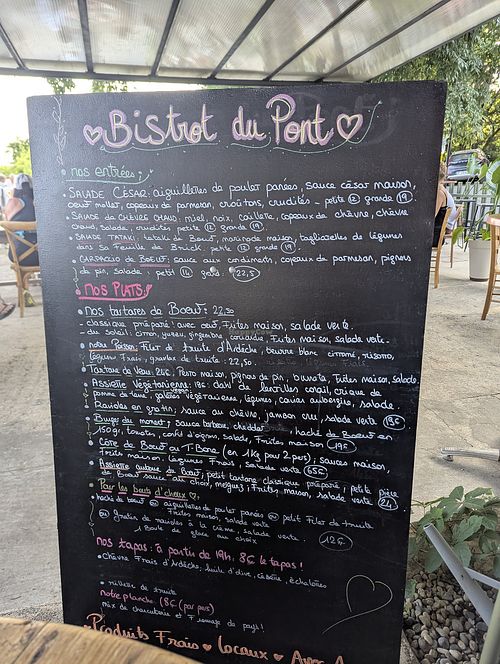 Bistrot du Pont
nos entrées :
• SALADE CÉSAR : aiguillettes de poulet panées, sauce césar maison,
oeuf mollet, copeaux de parmesan, croûtons, crudités - petite 12 grande 19
• SALADE de CHÈVRE CHAUD : miel, noix, caillette, copeaux de chèvre, chèvre
chaud, salade, crudités petite 12 grande 19
• SALADE TATAKI : tataki de Boeuf, marinade maison, tagliatelles de légumes
dans sa feuille de Brick. petite 12 grande 19
• CARPACCIO de BOEUF : sauce aux condiments, copeaux de parmesan, pignons
de pin, salade : petit 14 grand 22,5
• NOS PLATS :
• nos tartares de Boeuf : 22.50
- classique préparé : avec oeuf, Frites maison, salade verte.
- du soleil : citron, yuzu, gingembre, coriandre, Frites maison, salade verte.
• notre Poisson : Filet de truite d'Ardèche, beurre blanc citronné, risonis,
légumes Frais, gravlax de truite : 22,50.
• Tartare de Veau : 24€ Pesto maison, pignons de pin, burrata, Frites maison, salade.
• Assiette Végétarienne : 18€ : dahl de lentilles corail, crique de
pomme de terre, galettes végétariennes, légumes, caviar aubergine, salade.
• Ravioles en gratin : sauce au chèvre, jambon cru, salade verte 19€
• Burger du moment : sauce barbecue, cheddar, haché de Boeuf en
150 gr, tomates, confit d'oignons, salade, Frites maison 19€
• Côte de Boeuf ou T-Bone (en 1Kg pour 2 pers) : sauces maison,
Frites maison, légumes Frais, salade verte 65€
• Assiette autour du Boeuf : petit tartare classique préparé, petite pièce
de Boeuf sauce au choix, merguez, Frites maison, salade verte 24
• Pour les bouts d'choux ♡
• haché de boeuf ou aiguillettes de poulet panées ou petit Filet de truite
Frites maison, salade verte
ou gratin de ravioles à la crème, salade verte.
1 Boule de glace au choix 12€
nos tapas : à partir de 19h, 8€ le tapas !
• chèvre Frais d'Ardèche, huile d'olive, échalotes
• rillette de truite
notre planche : 18€ (par pers)
mix de charcuterie et Fromage du pays !
Produits Frais ♥ Locaux ♥